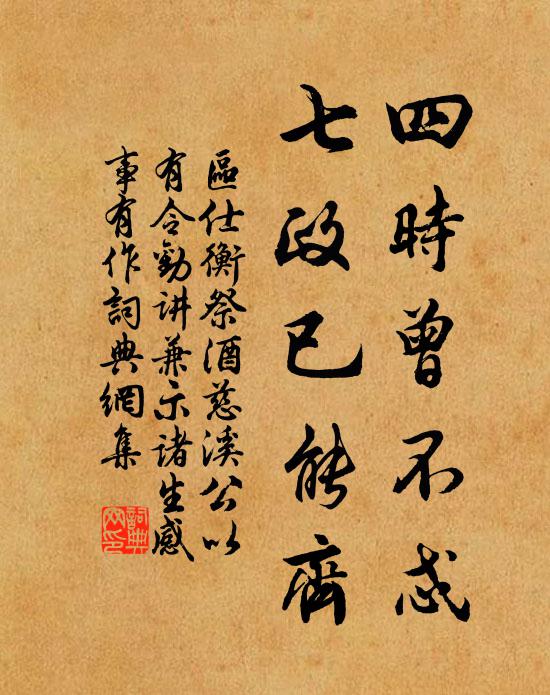 四時曾不忒
七政已能齊
區仕衡祭酒慈溪公以
有令勸讲兼示諸生感
事有作詞典網集
詞典
网印